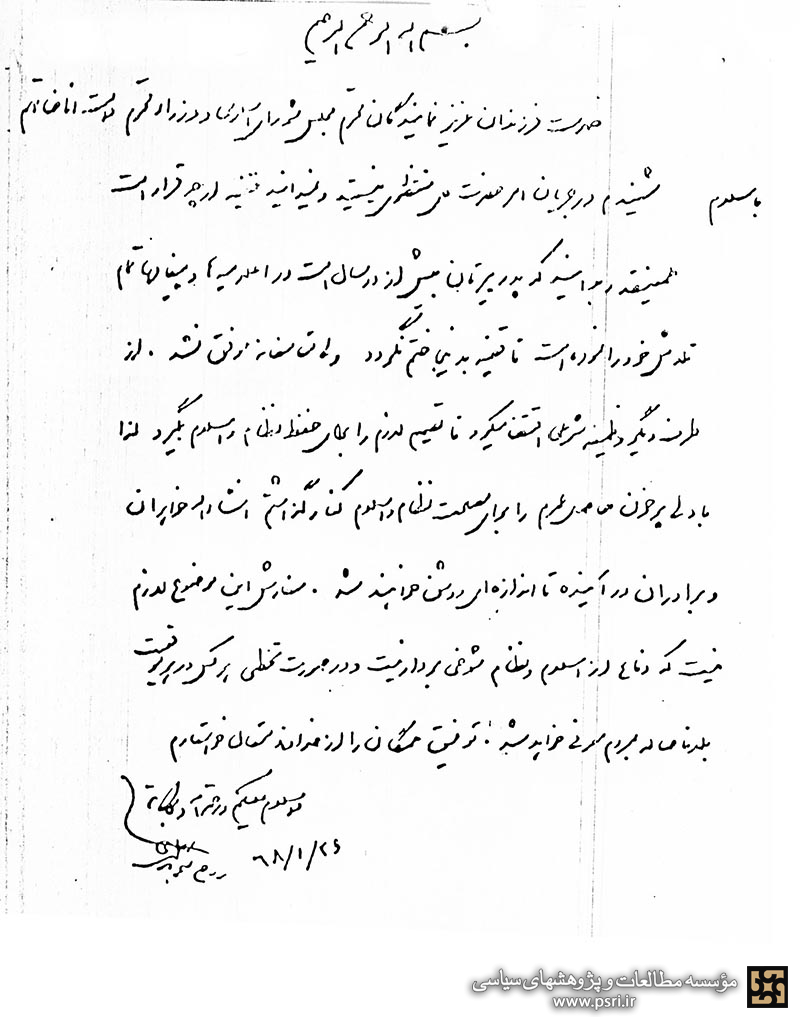 بسم الله الرحمن الرحیم
خدمت فرزندان عزیز نمایندگان محترم مجلس شورای اسلامی و وزراء محترم دامت افاضاتهم
با سلام شنیدم در جریان امر حضرت آقای منتظری نیستید و نمیدانید قضیه از چه قرار است
همینقدر بدانید که پدر پیرتان بیش از دو سال است در اعلامیه ها و پیغامها تمام
تلاش خود را نموده است تا قضیه بدینجا ختم نگردد ولی متاسفانه موفق نشد . از
طرف دیگر وظیفه شرعی اقتضا میکرد تا تصمیم لازم را برای حفظ نظام و اسلام بگیرد لذا
با دلی پرخون حاصل عمرم را برای مصلحت نظام و اسلام کنار گذاشتم انشاءالله خواهران
و برادران در آینده تا اندازه ای روشن خواهند شد . سفارش این موضوع لازم
نیست که دفاع از اسلام و نظام شوخی بردار نیست و در صورت تخطی هر کس در هر موقعیت
بلافاصله به مردم معرفی خواهد شد . توفیق همگان را از خداوند متعال خواستارم
والسلام علیکم و رحمة الله و برکاته
۶۸/۱/۲۶
روح الله الموسوی الخمینی
مؤسسه مطالعات و پژوهشهای سیاسی
www.psri.ir